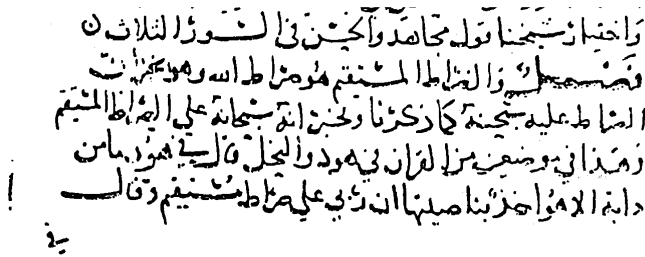 واختيار شيخنا قول مجاهد والحسن في السور الثلاث ن
فصــــل والصراط المستقيم هو صراط الله وهو يخبر ان
الصراط عليه سبحنه كما ذكرنا ويخبر انه سبحانه علي الصراط المستقيم
وهذا في موضعين من القران في هود والنحل قال في هود ما من
دابة الا هو اخذ بناصيتها ان ربي علي صراط مستقيم وقال
في